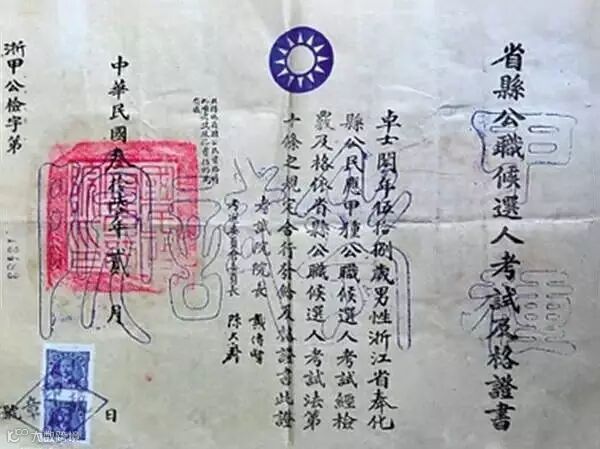 省縣公職候選人考試及格證書
甲種
卓士年伍拾捌歲男性浙江省奉化
縣公民應甲種公職候選人考試經檢
覈及格依省縣公職候選人考試法第
十條之規定合行發給及格證書此證
考試院院長 戴傳賢
考選委員會委員長 陳大齊
中華民國叁拾年貳月 日
浙甲公檢字第 號
章
大数跨境